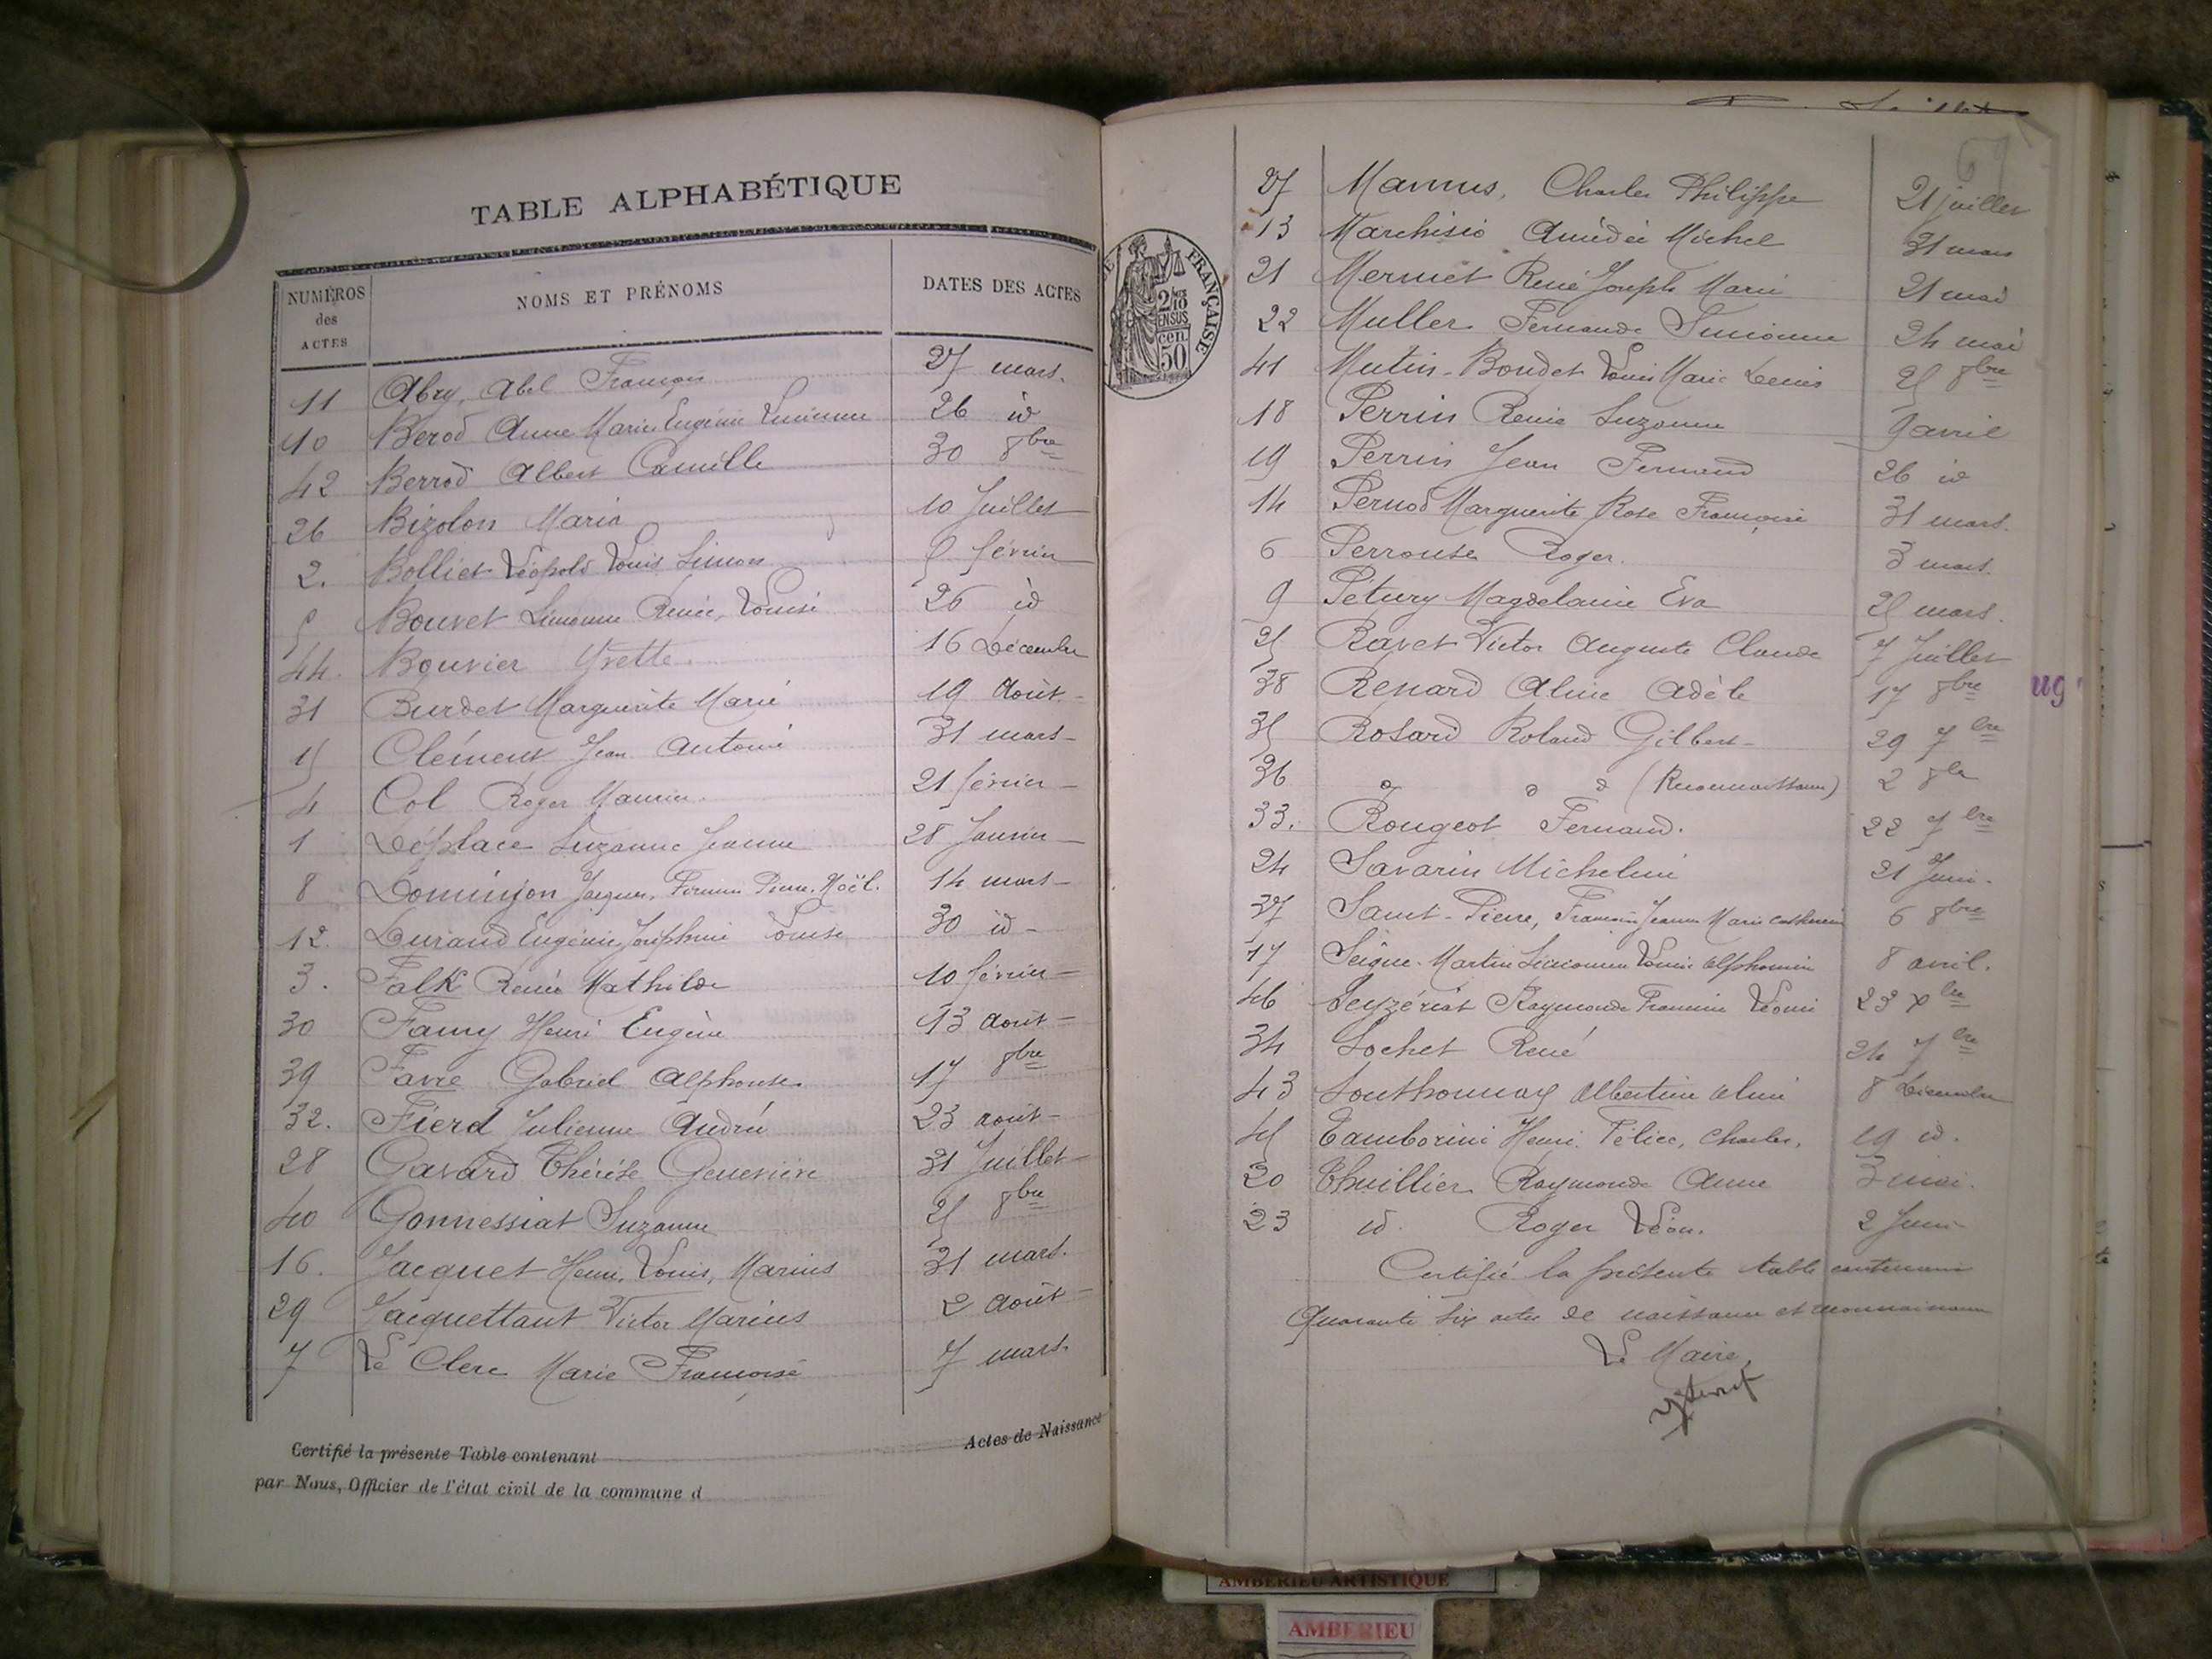 TABLE ALPHABÉTIQUE
NUMÉROS des ACTES NOMS ET PRÉNOMS DATES DES ACTES
11 Abry, Abel François 27 mars.
10 Berod Anne Marie Eugénie Lucienne 26 id
42 Berrod Albert Camille 30 8bre
26 Bizolon Maria 10 Juillet
2. Bolliet Léopold Louis Simon février
5 Bouvet Simonne Renée, Louise 26 id
44. Bouvier Yvette 16 Décembre
31 Burdet Marguerite Marie 19 Août
15 Clément Jean Antoine 31 mars
4 Col Roger Maurice 21 février
1 Déplace Suzanne Jeanne 28 Janvier
8 Dominjon Jacques, Firmin Pierre, Noël. 14 mars
12. Durand Eugénie Joséphine Louise 30 id
3. Falk Renée Mathilde 10 février
30 Famy Henri Eugène 13 août
39 Favre Gabriel Alphonse 17 8bre
32. Fierd Julienne Andrée 23 août
28 Gavard Thérèse Geneviève 31 Juillet
40 Gonnessiat Suzanne 25 8bre
16. Jacquet Henri, Louis, Marius 31 mars.
29 Jacquettant Victor Marius 2 Août
7 Le Clerc Marie Françoise 7 mars.
Certifié la présente Table contenant Actes de Naissance
par Nous, Officier de l'état civil de la commune d
FRANÇAISE
2/10 EN SUS
50 cen
27 Mamus, Charles Philippe 21 juillet
13 Marchisio Amédée Michel 31 mars
21 Mermet René Joseph Marie 21 mai
22 Muller Fernande Simonne 24 mai
41 Mutin-Boudet Louis Marie Denis 25 8bre
18 Perrin Renée Suzanne 9 avril
19 Perrin Jean Fernand 26 id
14 Pernod Marguerite Rose Françoise 31 mars.
6 Perrouse Roger. 3 mars.
9 Pétury Magdelaine Eva 25 mars.
25 Ravet Victor Auguste Claude 7 Juillet
38 Renard Aline Adèle 17 8bre
35 Rosard Roland Gilbert 29 7bre
36 d d d (Reconnaissance) 2 8bre
33. Rougeot Fernand. 22 7bre
24 Savarin Micheline 21 Juin.
37 Saint-Pierre, Jeanne Marie 6 8bre
17 Seigne-Martin Louise Alphonsine 8 avril.
46 Seyzériat Raymonde Francine Léonie 23 Xbre
34 Sochet René 24 7bre
43 Southonnax Albertine Aline 8 Décembre
45 Tamborini Henri, Félice, Charles, 19 id.
20 Thuillier Raymonde Anne 3 mai.
23 id. Roger Léon. 2 Juin
Certifié la présente table contenant
Quarante six actes de naissance et reconnaissance
Le Maire,
ug
AMBERIEU ARTISTIQUE
AMBERIEU